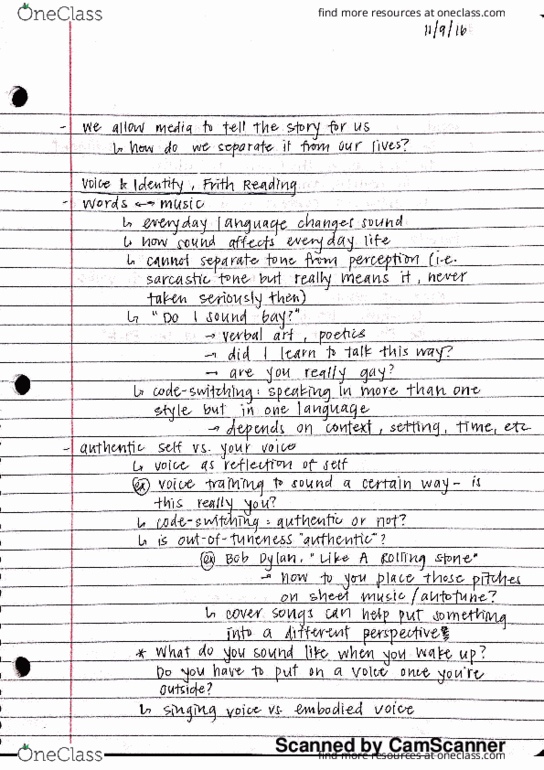 OneClass
find more resources at oneclass.com
11/9/16
- we allow media to tell the story for us
↳ how do we separate it from our lives?
Voice & Identity, Frith Reading
- words ↔ music
↳ everyday language changes sound
↳ how sound affects everyday life
↳ cannot separate tone from perception (i.e.
sarcastic tone but really means it, never
taken seriously then)
↳ "Do I sound bay?"
→ verbal art, poetics
→ did I learn to talk this way?
→ are you really gay?
↳ code-switching: speaking in more than one
style but in one language
→ depends on context, setting, time, etc
- authentic self vs. your voice
↳ voice as reflection of self
ex voice training to sound a certain way - is
this really you?
↳ code-switching = authentic or not?
↳ is out-of-tuneness "authentic"?
ex Bob Dylan, "Like A Rolling Stone"
→ how to you place those pitches
on sheet music/autotune?
↳ cover songs can help put something
into a different perspective
* What do you sound like when you wake up?
Do you have to put on a voice once you're
outside?
↳ singing voice vs embodied voice
Scanned by CamScanner
OneClass
find more resources at oneclass.com